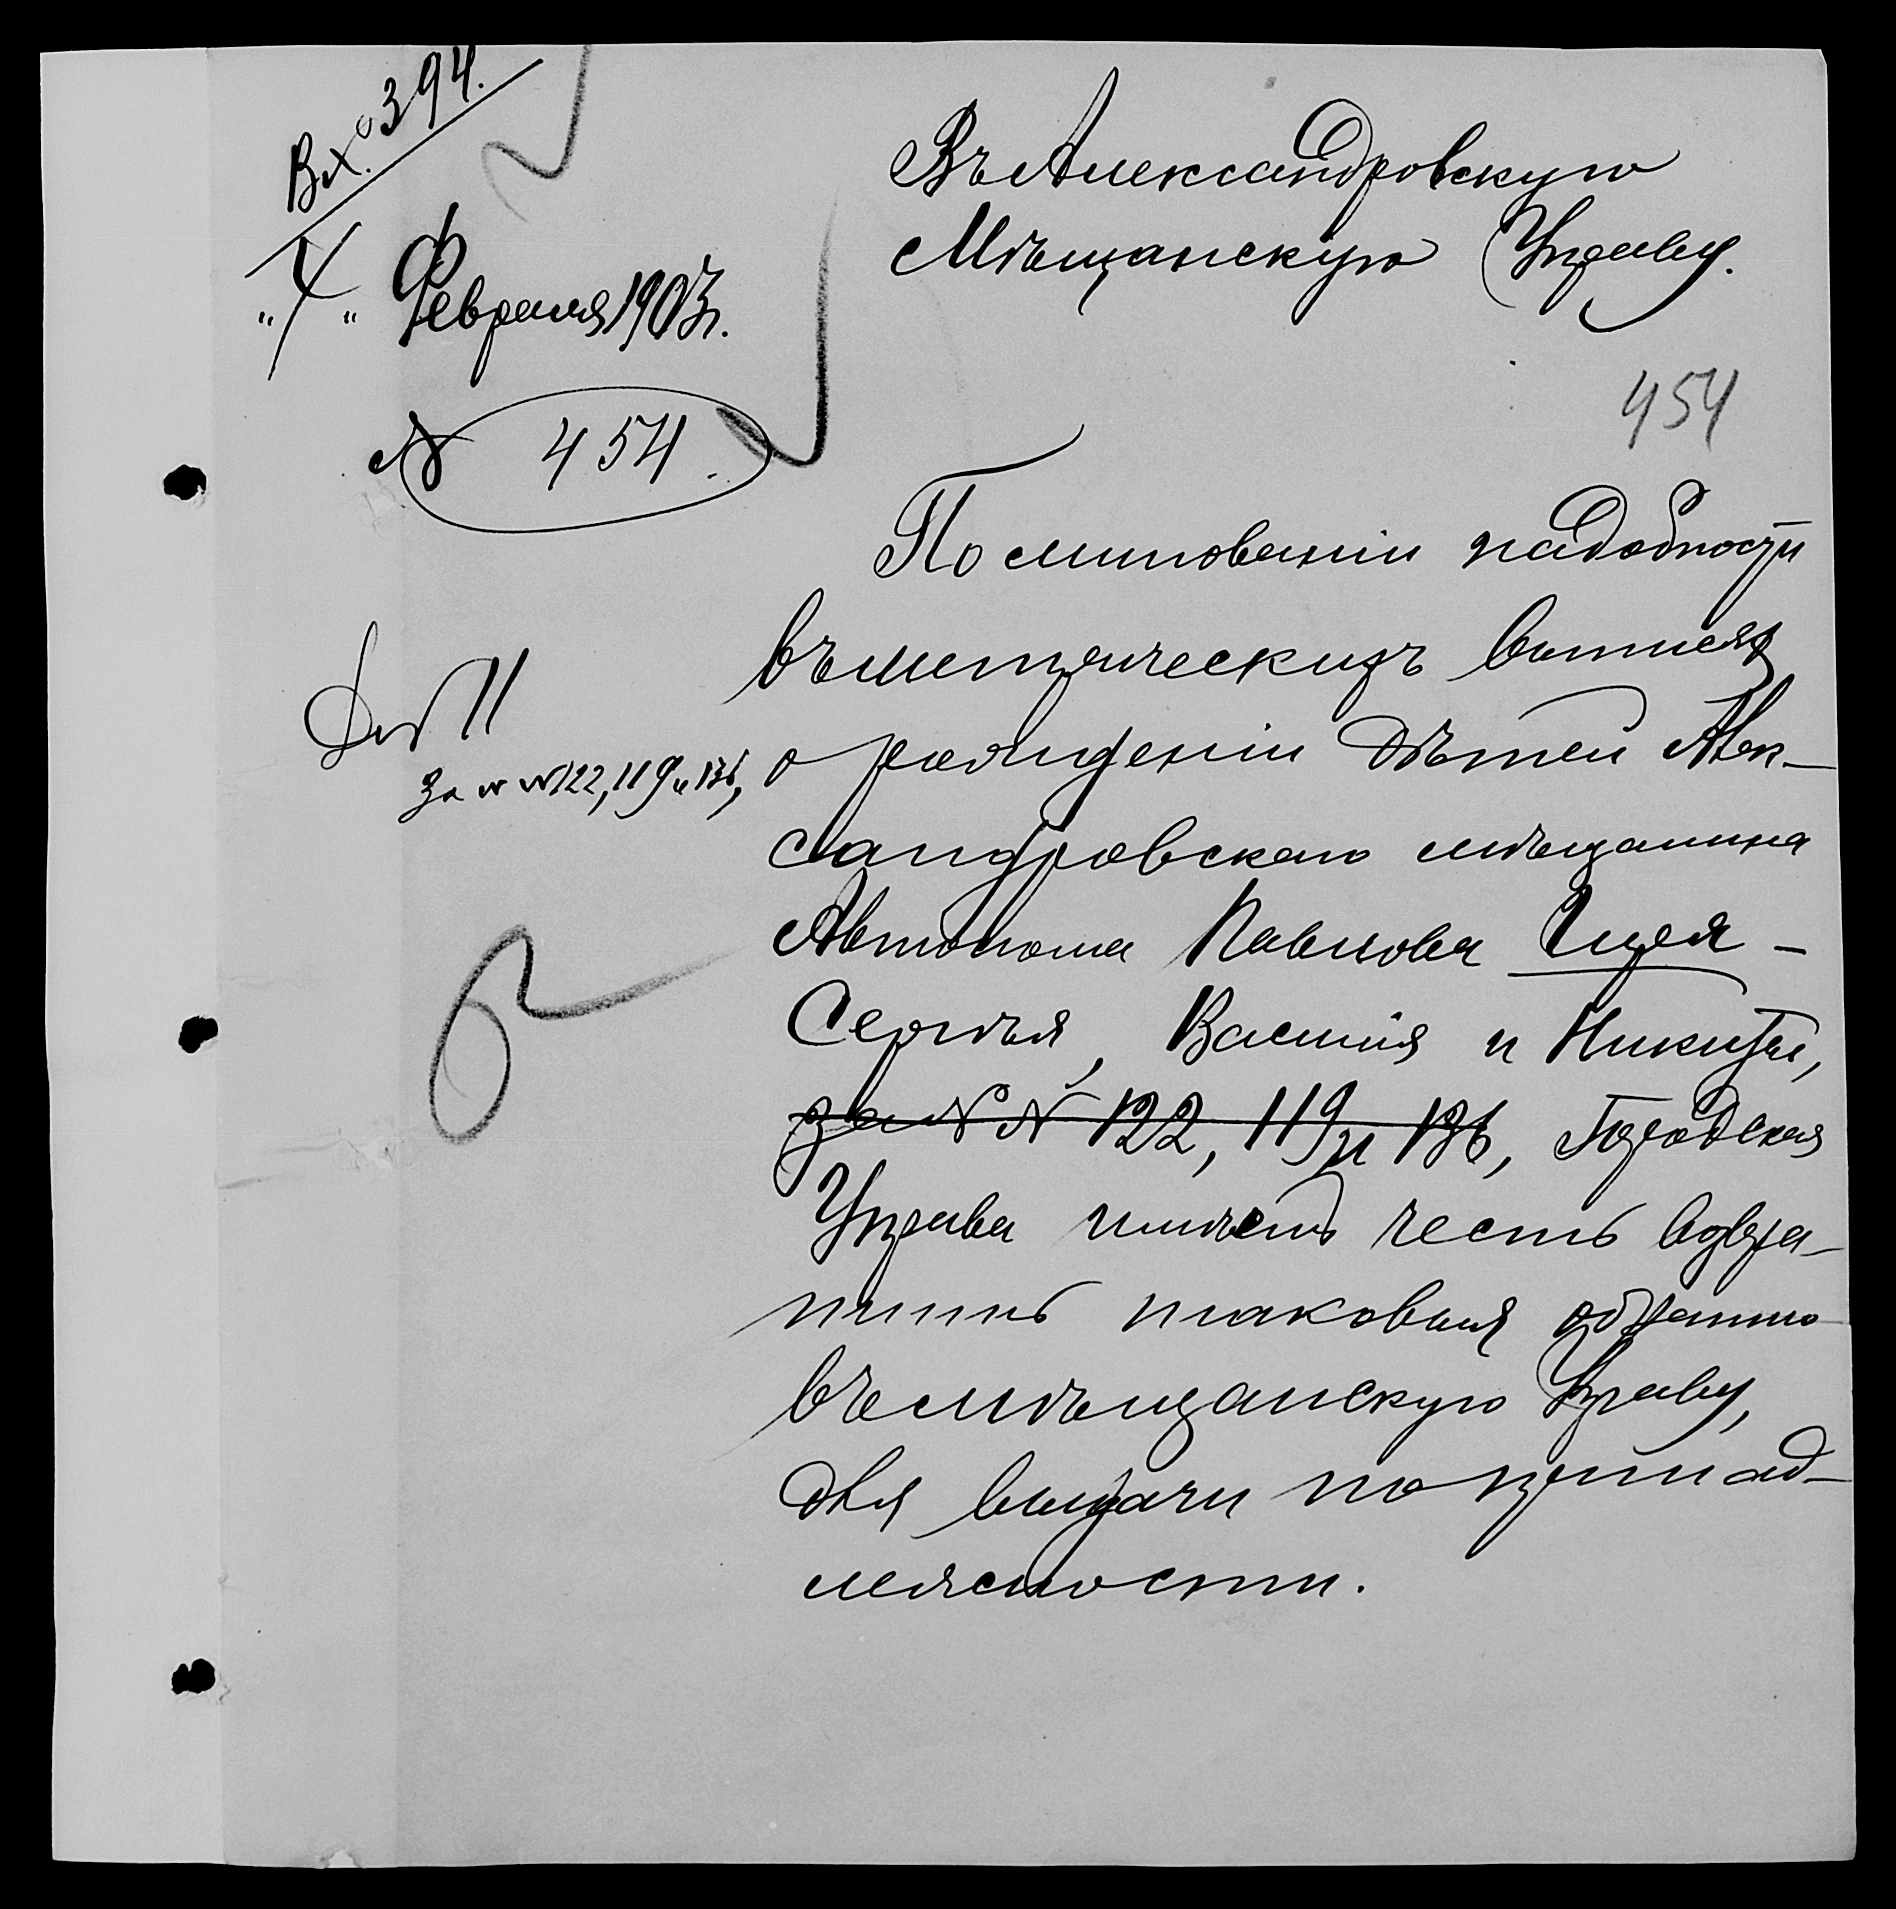 Вх. 394.
"4" Февраля 1903 г.
№ 454.
Въ Александровскую
Мѣщанскую Управу.
454
По минованіи надобности
въ метрическихъ выписях
о рожденіи дѣтей Алек-
сандровскаго мѣщанина
Автонома Павлова
Сергѣя, Василія и Никиты,
за №№ 122, 119 и 136, Городская
Управа имѣетъ честь возвра-
тить таковыя обратно
въ мѣщанскую Управу,
для выдачи по принад-
лежности.
за №№ 122, 119 и 136,